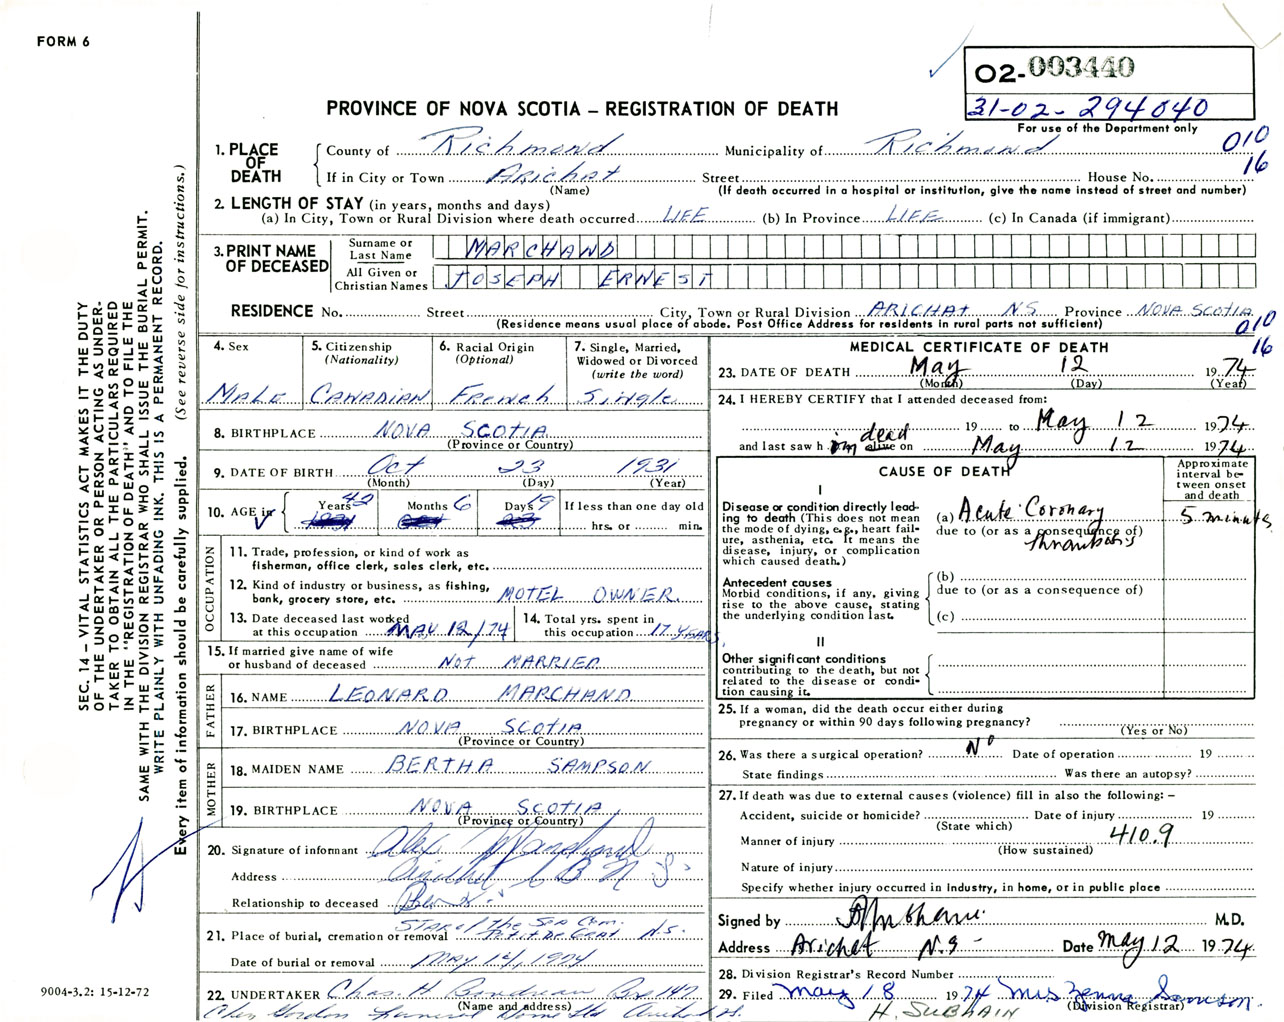 FORM 6
02-003440
31-02-294040
For use of the Department only
PROVINCE OF NOVA SCOTIA – REGISTRATION OF DEATH
010
16
1. PLACE OF DEATH
County of Richmond Municipality of Richmond
If in City or Town Arichat Street House No.
(Name) (If death occurred in a hospital or institution, give the name instead of street and number)
2. LENGTH OF STAY (in years, months and days)
(a) In City, Town or Rural Division where death occurred LIFE (b) In Province LIFE (c) In Canada (if immigrant)
3. PRINT NAME OF DECEASED
Surname or Last Name MARCHAND
All Given or Christian Names JOSEPH ERNEST
RESIDENCE No. Street City, Town or Rural Division ARICHAT N.S. Province NOVA SCOTIA
(Residence means usual place of abode. Post Office Address for residents in rural parts not sufficient)
010
16
4. Sex
Male
5. Citizenship
(Nationality)
CANADIAN
6. Racial Origin
(Optional)
French
7. Single, Married,
Widowed or Divorced
(write the word)
Single
8. BIRTHPLACE NOVA SCOTIA
(Province or Country)
9. DATE OF BIRTH Oct 23 1931
(Month) (Day) (Year)
10. AGE is Years 42 Months 6 Days 19 If less than one day old
hrs. or min.
OCCUPATION
11. Trade, profession, or kind of work as
fisherman, office clerk, sales clerk, etc.
12. Kind of industry or business, as fishing,
bank, grocery store, etc. MOTEL OWNER
13. Date deceased last worked
at this occupation MAY 12/74
14. Total yrs. spent in
this occupation 17 YEARS
15. If married give name of wife
or husband of deceased NOT MARRIED
FATHER
16. NAME LEONARD MARCHAND
17. BIRTHPLACE NOVA SCOTIA
(Province or Country)
MOTHER
18. MAIDEN NAME BERTHA SAMPSON
19. BIRTHPLACE NOVA SCOTIA
(Province or Country)
20. Signature of informant Alex Marchand
Address Arichat C B N.S.
Relationship to deceased
21. Place of burial, cremation or removal STAR of the Sea Cem. Petit De Grat N.S.
Date of burial or removal MAY 14, 1974
22. UNDERTAKER Chas. H. Boudreau
(Name and address)
Funeral Home Ltd
MEDICAL CERTIFICATE OF DEATH
23. DATE OF DEATH May 12 1974
(Month) (Day) (Year)
24. I HEREBY CERTIFY that I attended deceased from:
19 to May 12 1974
and last saw him dead alive on May 12 1974
CAUSE OF DEATH
Approximate interval between onset and death
I
Disease or condition directly leading to death (This does not mean the mode of dying, e.g., heart failure, asthenia, etc. It means the disease, injury, or complication which caused death.)
(a) Acute Coronary 5 minutes
due to (or as a consequence of)
thrombosis
Antecedent causes
Morbid conditions, if any, giving rise to the above cause, stating the underlying condition last.
(b)
due to (or as a consequence of)
(c)
II
Other significant conditions
contributing to the death, but not related to the disease or condition causing it.
25. If a woman, did the death occur either during
pregnancy or within 90 days following pregnancy?
(Yes or No)
26. Was there a surgical operation? No Date of operation 19
State findings Was there an autopsy?
27. If death was due to external causes (violence) fill in also the following: –
Accident, suicide or homicide? Date of injury 19
(State which)
Manner of injury 410.9
(How sustained)
Nature of injury
Specify whether injury occurred in Industry, in home, or in public place
Signed by M.D.
Address Arichat N.S. Date May 12 1974
28. Division Registrar's Record Number
29. Filed May 18 1974 Mrs Zenna Samson
(Division Registrar)
SEC. 14 – VITAL STATISTICS ACT MAKES IT THE DUTY
OF THE UNDERTAKER OR PERSON ACTING AS UNDER-
TAKER TO OBTAIN ALL THE PARTICULARS REQUIRED
IN THE "REGISTRATION OF DEATH" AND TO FILE THE
SAME WITH THE DIVISION REGISTRAR WHO SHALL ISSUE THE BURIAL PERMIT.
WRITE PLAINLY WITH UNFADING INK. THIS IS A PERMANENT RECORD.
Every item of information should be carefully supplied. (See reverse side for instructions.)
9004-3.2: 15-12-72